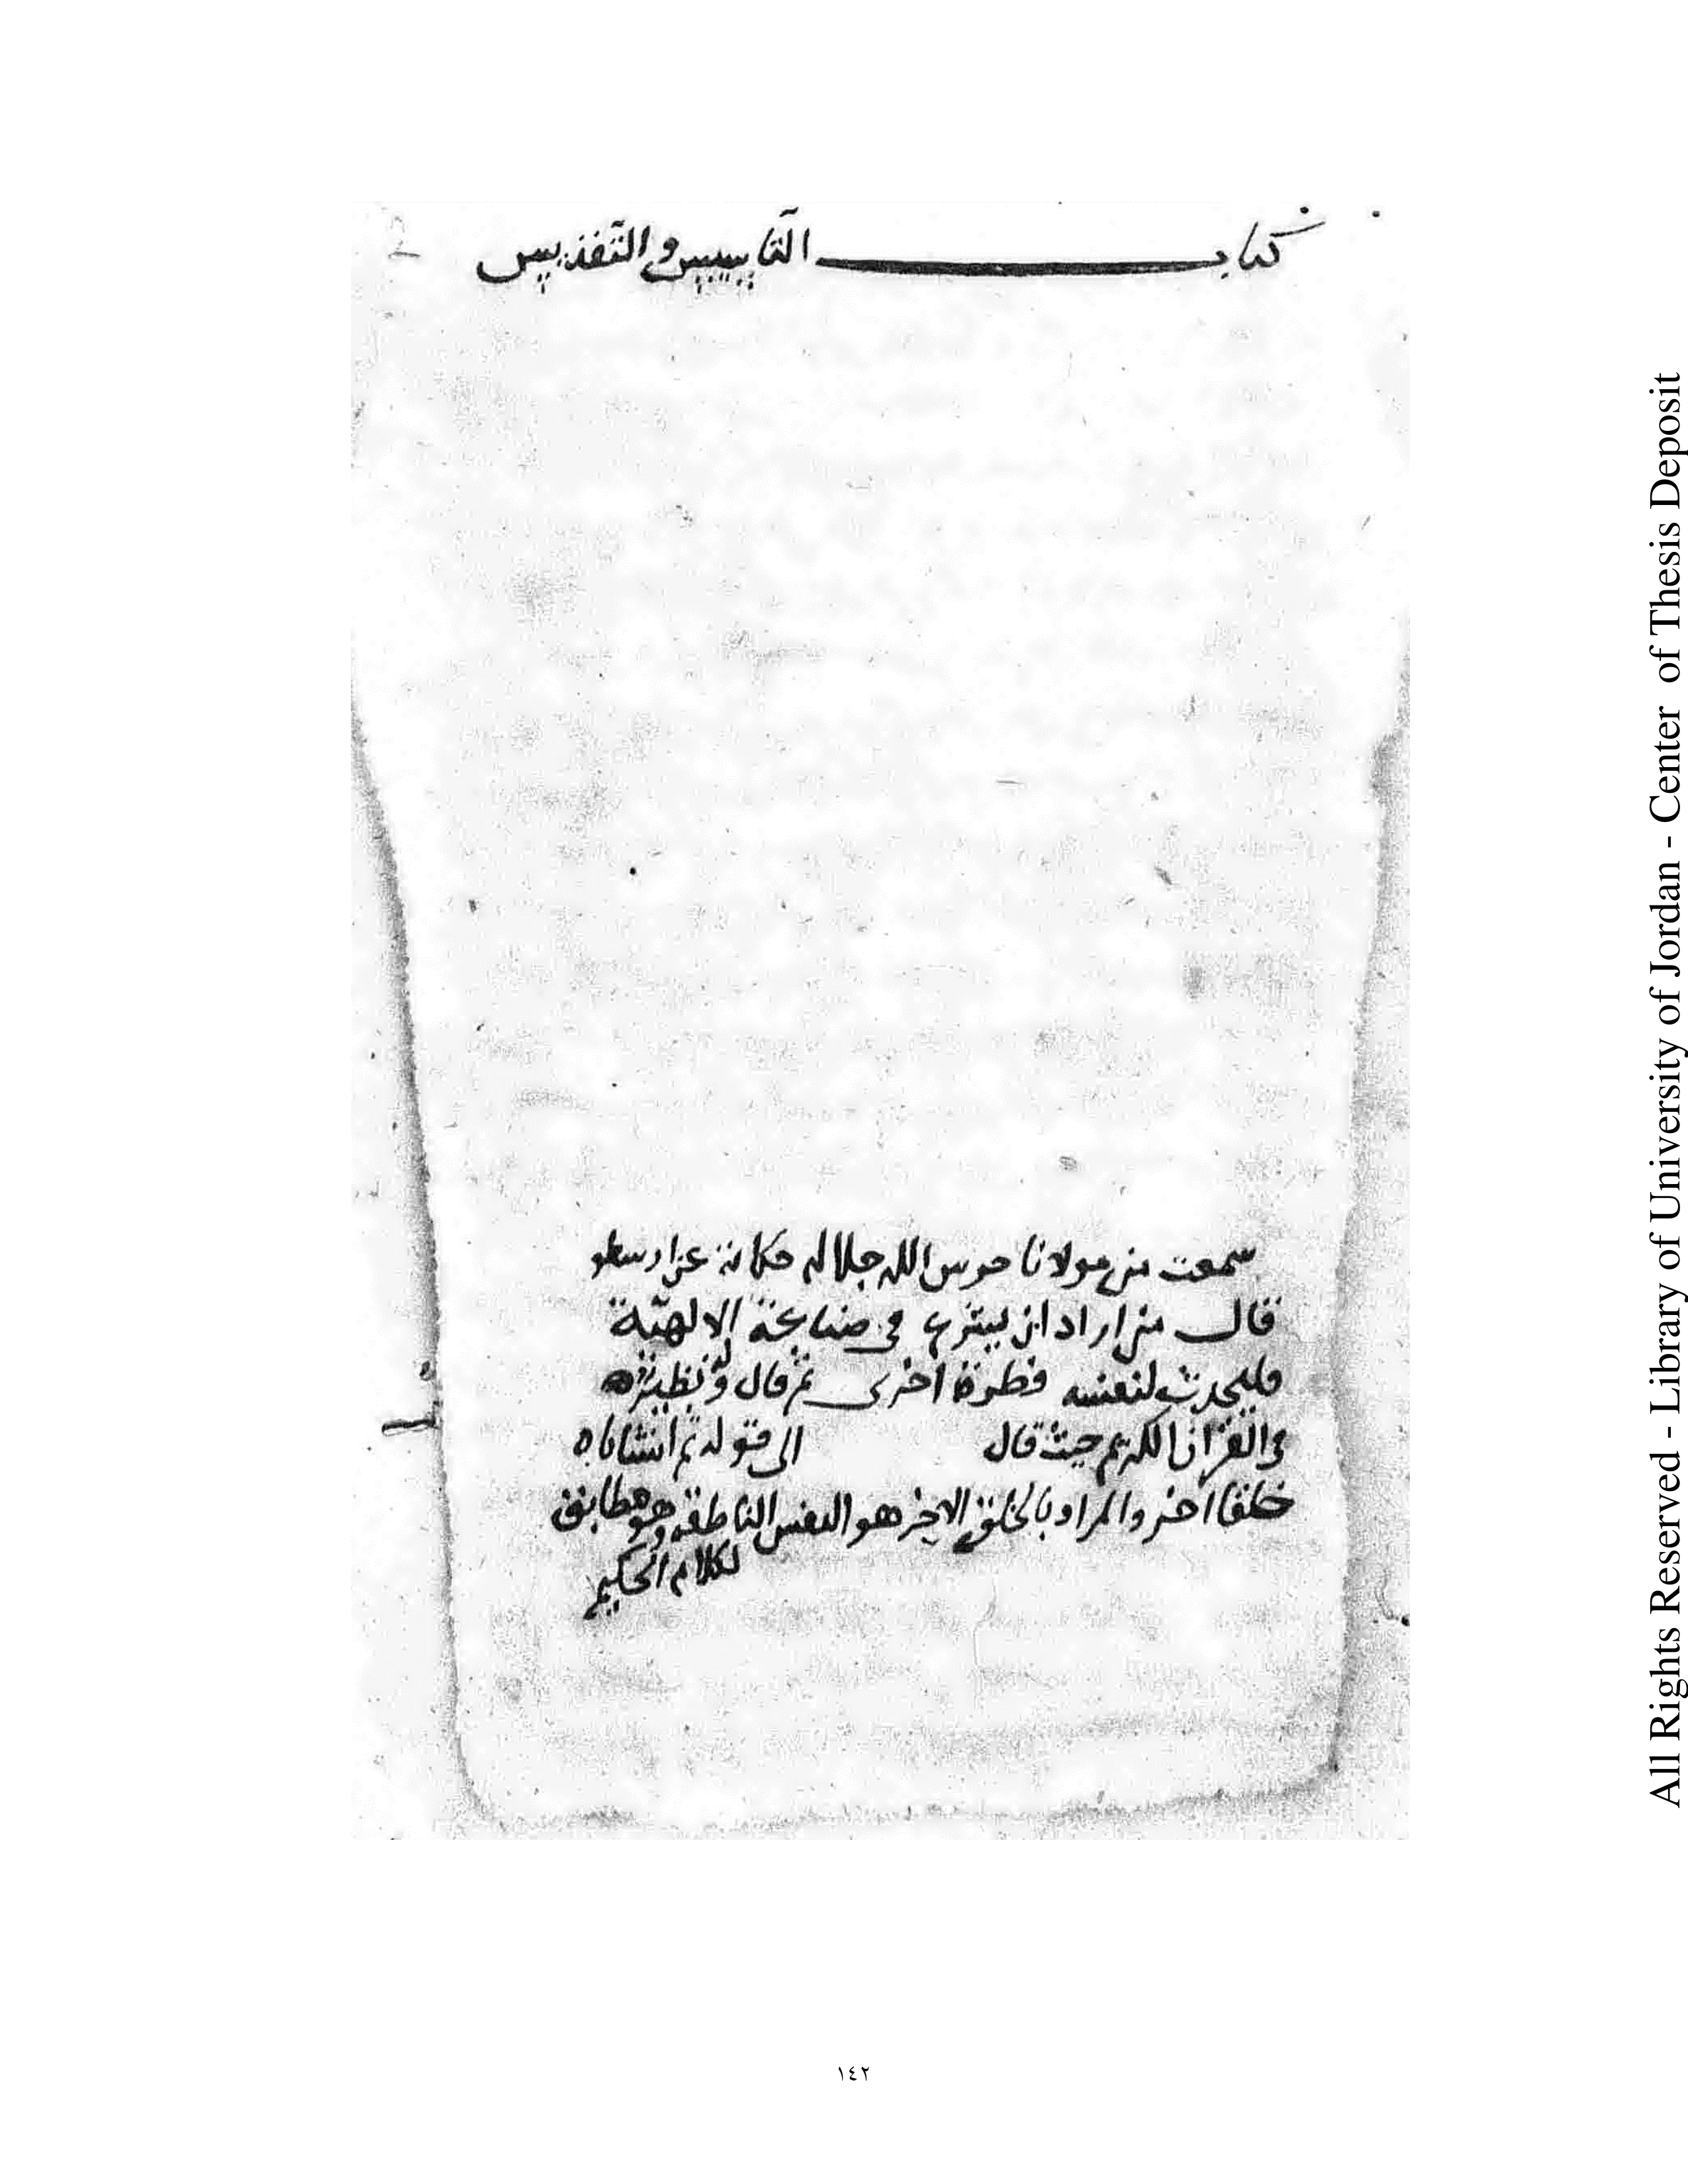 كتاب التاسيس والتقديس
سمعت من مولانا حرس الله جلاله حكاية عن ارسطو
قال من اراد ان يشرع فى صناعة الالهية
فليحدث لنفسه فطرة اخرى ثم قال و نظيره
فى القران الكريم حيث قال الى قوله ثم انشاناه
خلقا اخر والمراد بالخلق الاخر هو النفس الناطقه وهو مطابق
لكلام الحكيم
١٤٢
All Rights Reserved - Library of University of Jordan - Center of Thesis Deposit